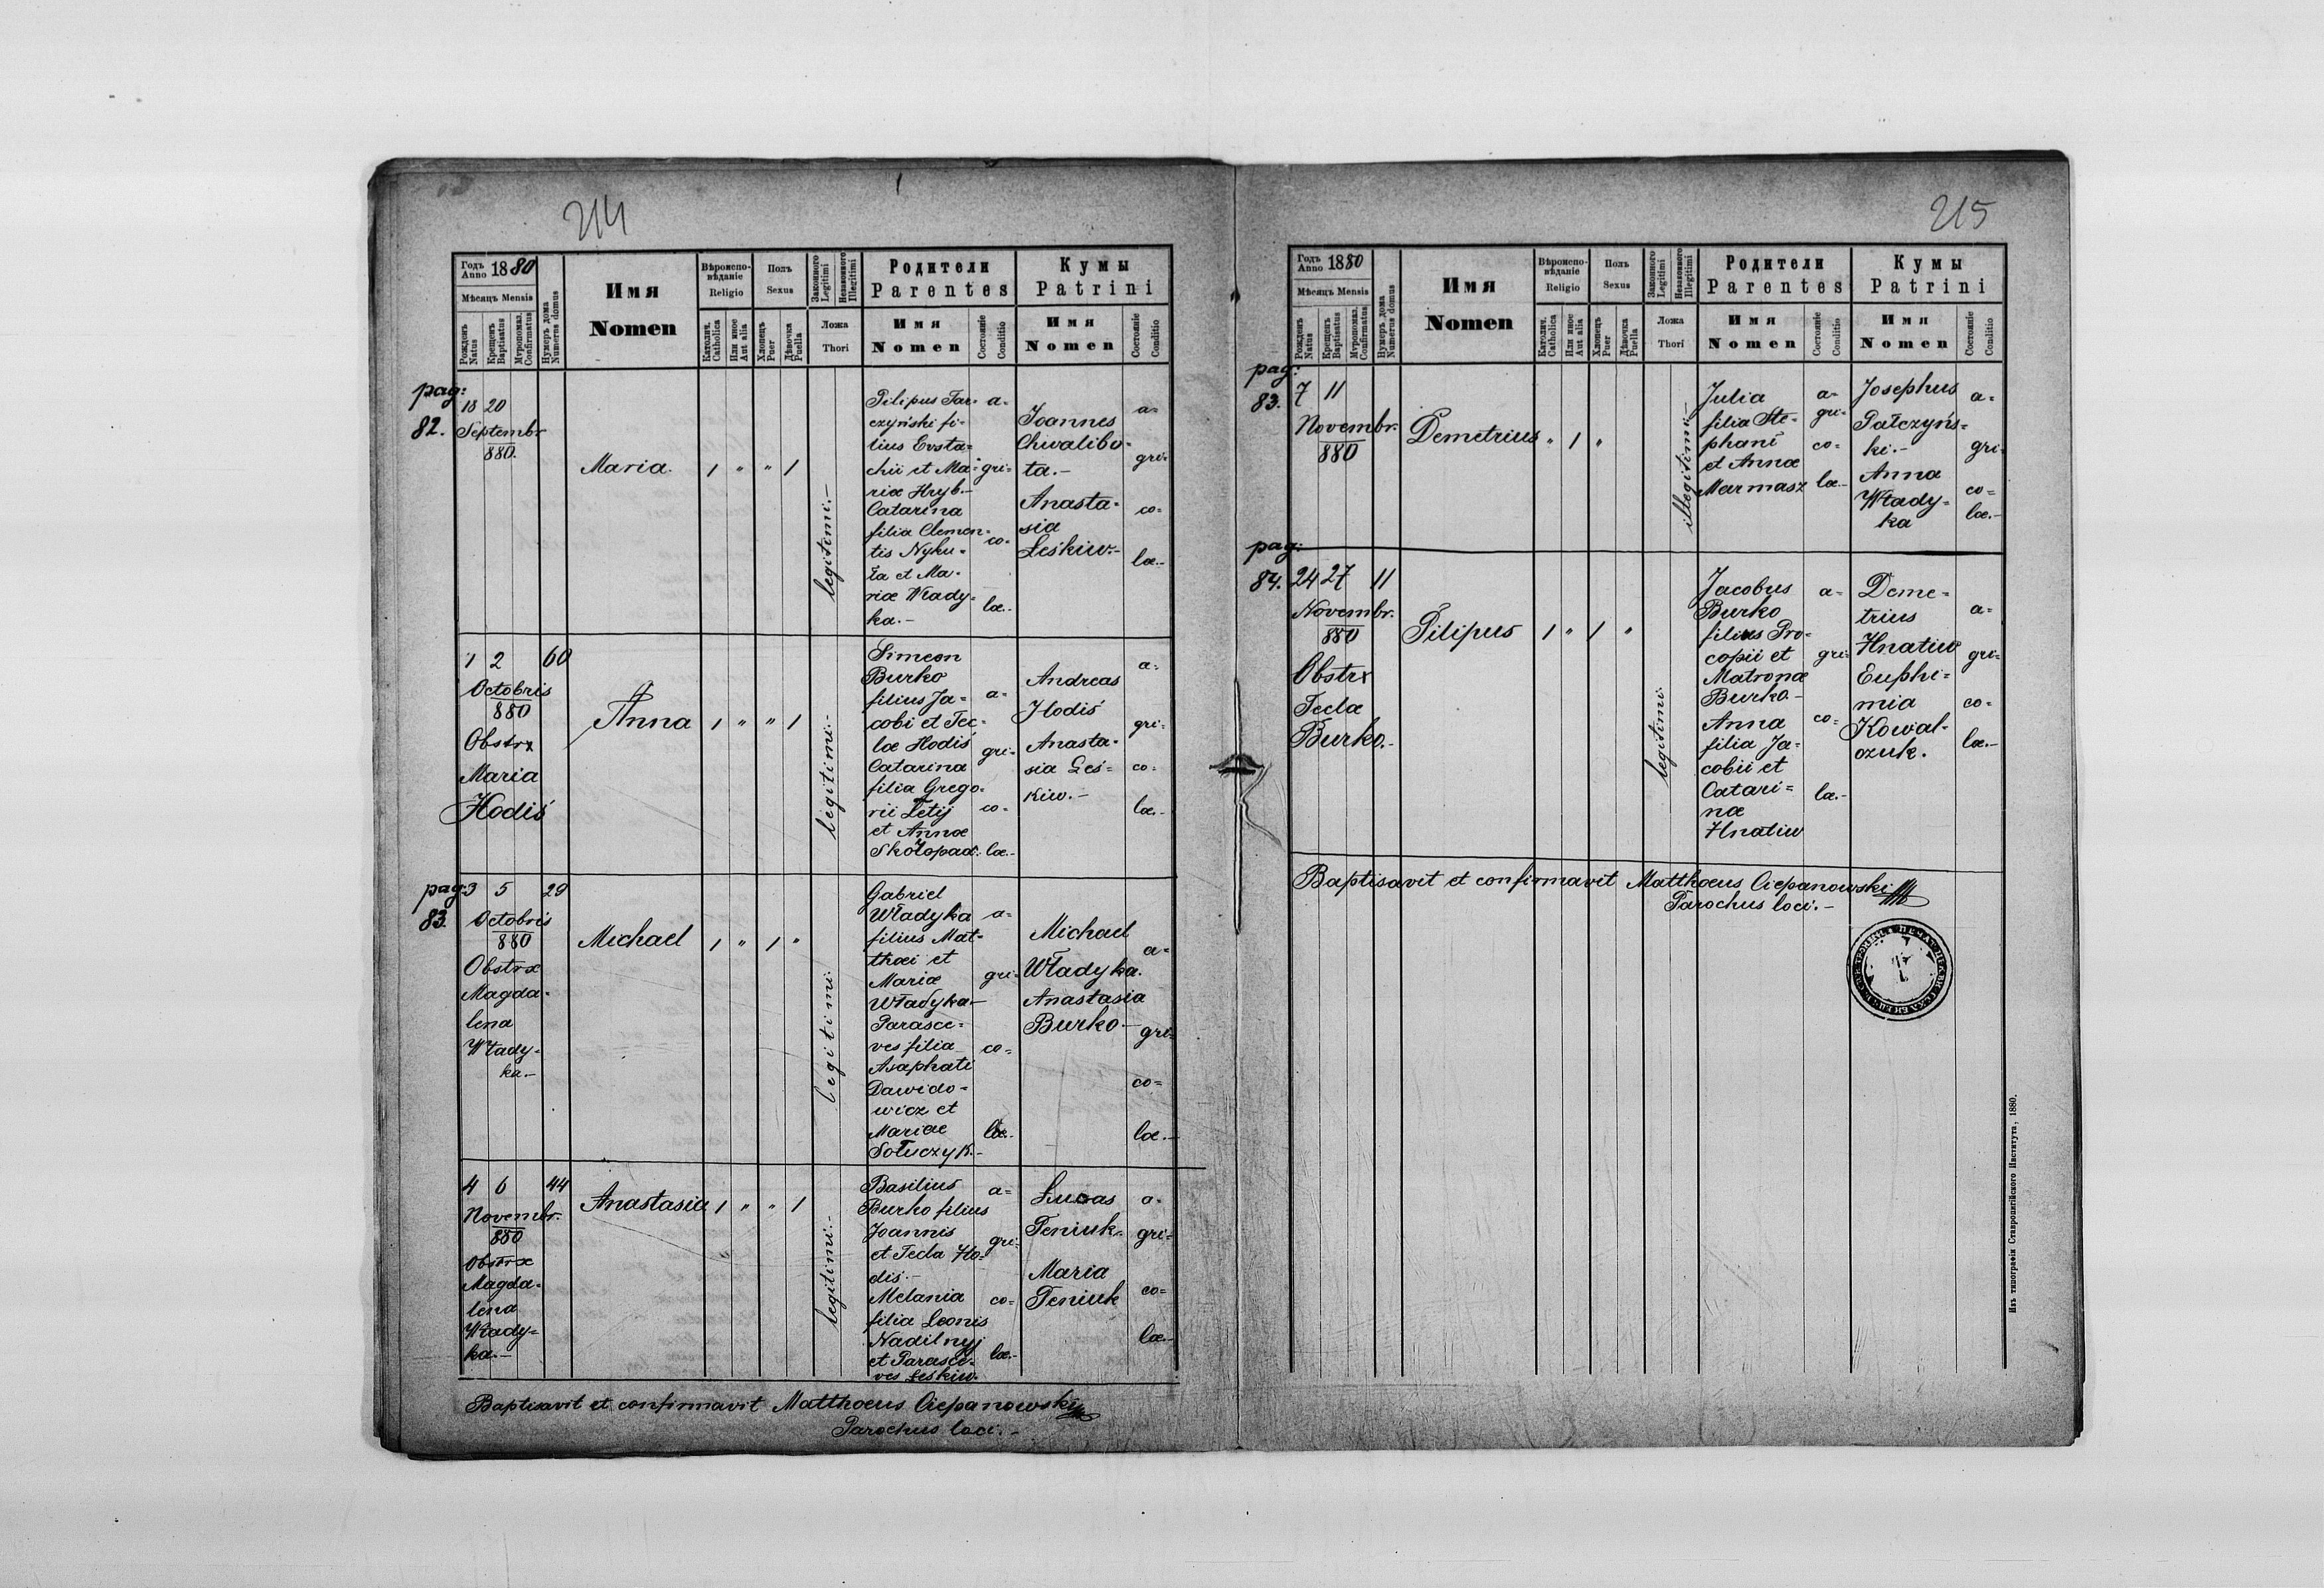 214
Годъ Anno 1880
Мѣсяцъ Mensis
Рожденъ Natus
Крещенъ Baptisatus
Муропомаз. Confirmatus
Нумеръ дома Numerus domus
Имя
Nomen
Вѣроиспо-
вѣданіе
Religio
Католич. Catholica
Или иное Aut alia
Полъ
Sexus
Хлопецъ Puer
Дѣвочка Puella
Законного Legitimi
Незаконного Illegitimi
Ложа
Thori
Родители
Parentes
Имя
Nomen
Состояніе Conditio
Кумы
Patrini
Имя
Nomen
Состояніе Conditio
pag:
82.
18 20
Septembr
880.
Maria
1 " " 1
legitimi.-
Pilipus Tar=
czyński fi=
lius Evsta=
chii et Ma=
riæ Hryb.-
Catarina
filia Clemen=
tis Nyku=
ła et Ma=
riæ Włady=
ka.-
a=
gri=
co=
læ.
Joannes
Chwalibo=
ta.-
Anasta=
sia
Leśkiw.-
a=
gri=
co=
læ.-
1 2 60
Octobris
880
Obstrx
Maria
Hodiś
Anna
1 " " 1
legitimi.-
Simeon
Burko
filius Ja=
cobi et Tec=
læ Hodiś
Catarina
filia Grego=
rii Letij
et Annæ
Skołopad.
a=
gri=
co=
læ.-
Andreas
Hodiś
Anasta=
sia Leś=
kiw.-
a=
gri=
co=
læ.-
pag:
83.
3 5 29
Octobris
880
Obstræ
Magda=
lena
Włady=
ka.-
Michael
1 " 1 "
legitimi.
Gabriel
Władyka
filius Mat=
thæi et
Mariæ
Władyka-
Parasce=
ves filia
Asaphati
Dawido=
wicz et
Mariæ
Sołuczyk.-
a=
gri=
co=
læ.-
Michael
Władyka.
Anastasia
Burko.-
a=
gri=
co=
læ.-
4 6 44
Novembr.
880
Obstræ
Magda=
lena
Włady=
ka.-
Anastasia
1 " " 1
legitimi.-
Basilius
Burko filius
Joannis
et Tecla Ho=
dis.-
Melania
filia Leonis
Nadilnyj
et Parasce=
ves Leskiw.
a=
gri=
co=
læ.-
Lucas
Teniuk.
Maria
Teniuk
a=
gri=
co=
læ.-
Baptisavit et confirmavit Matthoeus Ciepanowski
Parochus loci.-
215
Годъ Anno 1880
Мѣсяцъ Mensis
Рожденъ Natus
Крещенъ Baptisatus
Муропомаз. Confirmatus
Нумеръ дома Numerus domus
Имя
Nomen
Вѣроиспо-
вѣданіе
Religio
Католич. Catholica
Или иное Aut alia
Полъ
Sexus
Хлопецъ Puer
Дѣвочка Puella
Законного Legitimi
Незаконного Illegitimi
Ложа
Thori
Родители
Parentes
Имя
Nomen
Состояніе Conditio
Кумы
Patrini
Имя
Nomen
Состояніе Conditio
pag:
83.
7 11
Novembr.
880
Demetrius
" 1 "
illegitimi.-
Julia
filia Ste=
phani
et Annæ
Marmasz
a=
gri=
co=
læ.-
Josephus
Pałczyńs=
ki.-
Anna
Włady=
ka
a=
gri=
co=
læ.-
pag:
84.
24 27 11
Novembr.
880
Obstrx
Teclæ
Burko.-
Pilipus
1 " 1 "
legitimi.
Jacobus
Burko
filius Pro=
copii et
Matronæ
Burko-
Anna
filia Ja=
cobii et
Catari=
næ
Hnatiw
a=
gri=
co=
læ.-
Deme=
trius
Hnatiw
Euphi=
mia
Kowal=
czuk.
a=
gri=
co=
læ.-
Baptisavit et confirmavit Matthoeus Ciepanowski
Parochus loci.-
Изъ типографіи Ставропигійского Института, 1880.